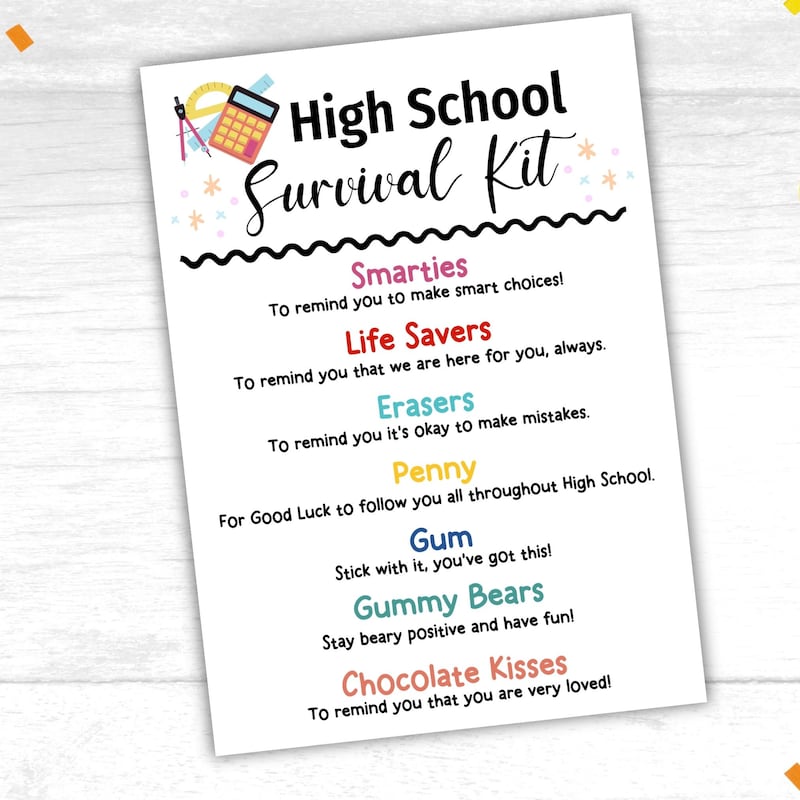 High School
Survival Kit
Smarties
To remind you to make smart choices!
Life Savers
To remind you that we are here for you, always.
Erasers
To remind you it's okay to make mistakes.
Penny
For Good Luck to follow you all throughout High School.
Gum
Stick with it, you've got this!
Gummy Bears
Stay beary positive and have fun!
Chocolate Kisses
To remind you that you are very loved!